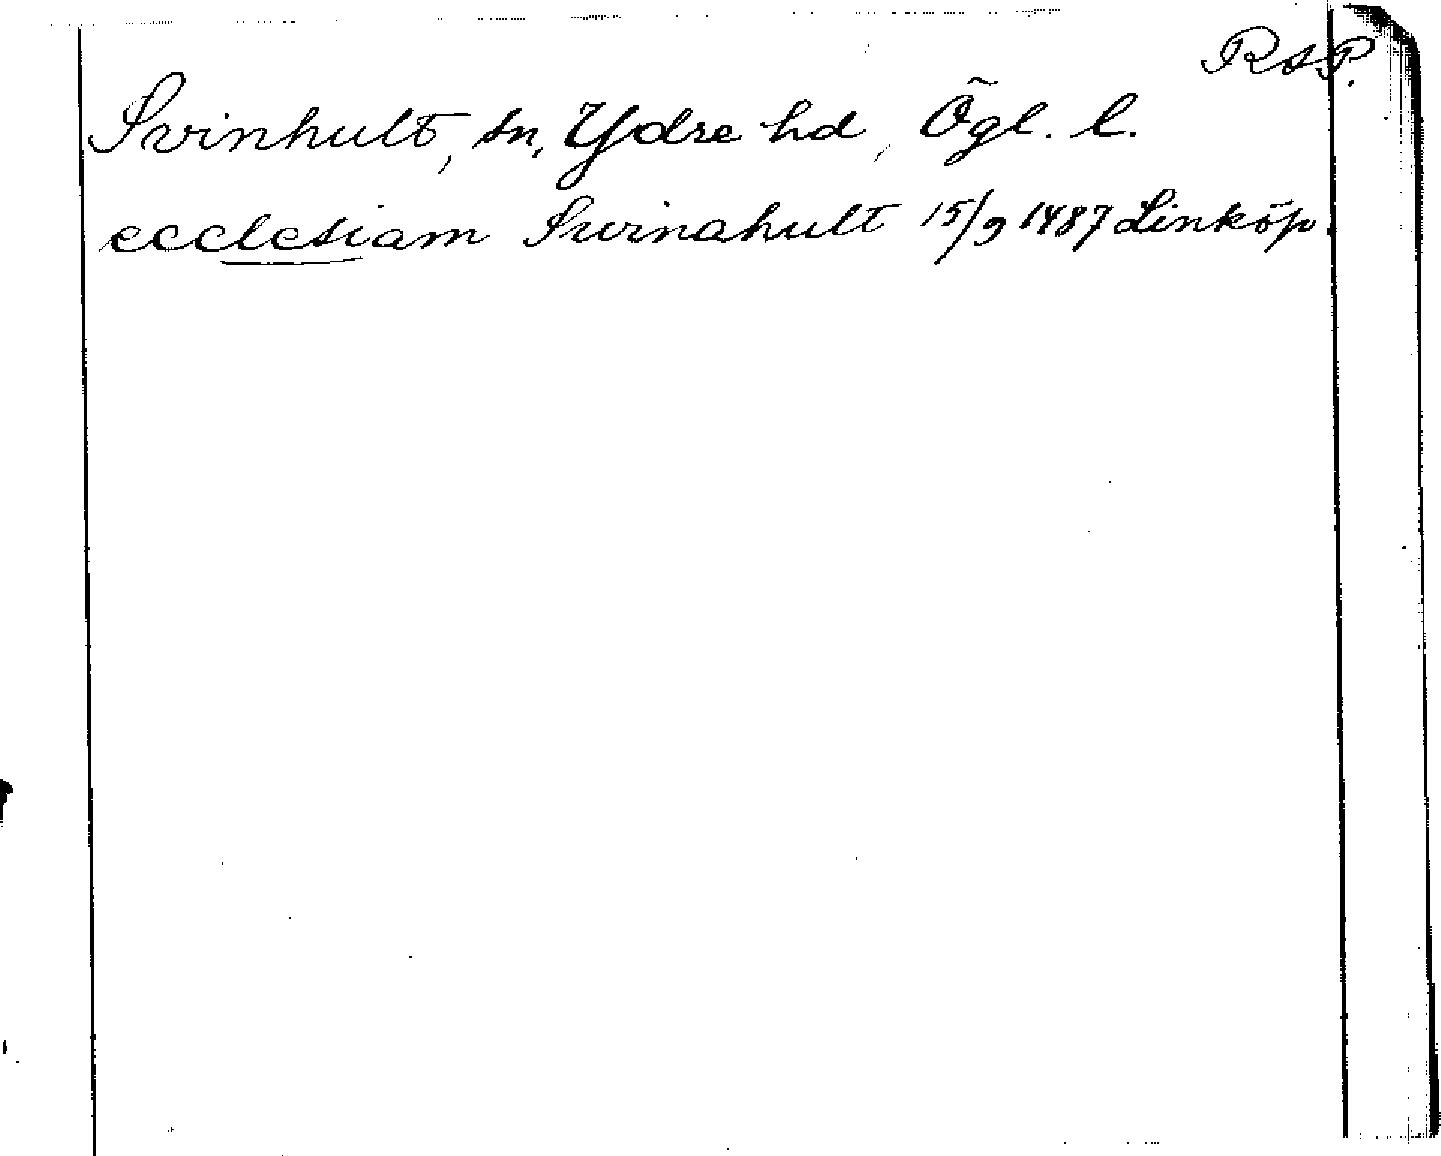 RAP.
Svinhult, sn, Ydre hd, Ögl. l.
ecclesiam Swinahult 15/9 1487 Linköp.